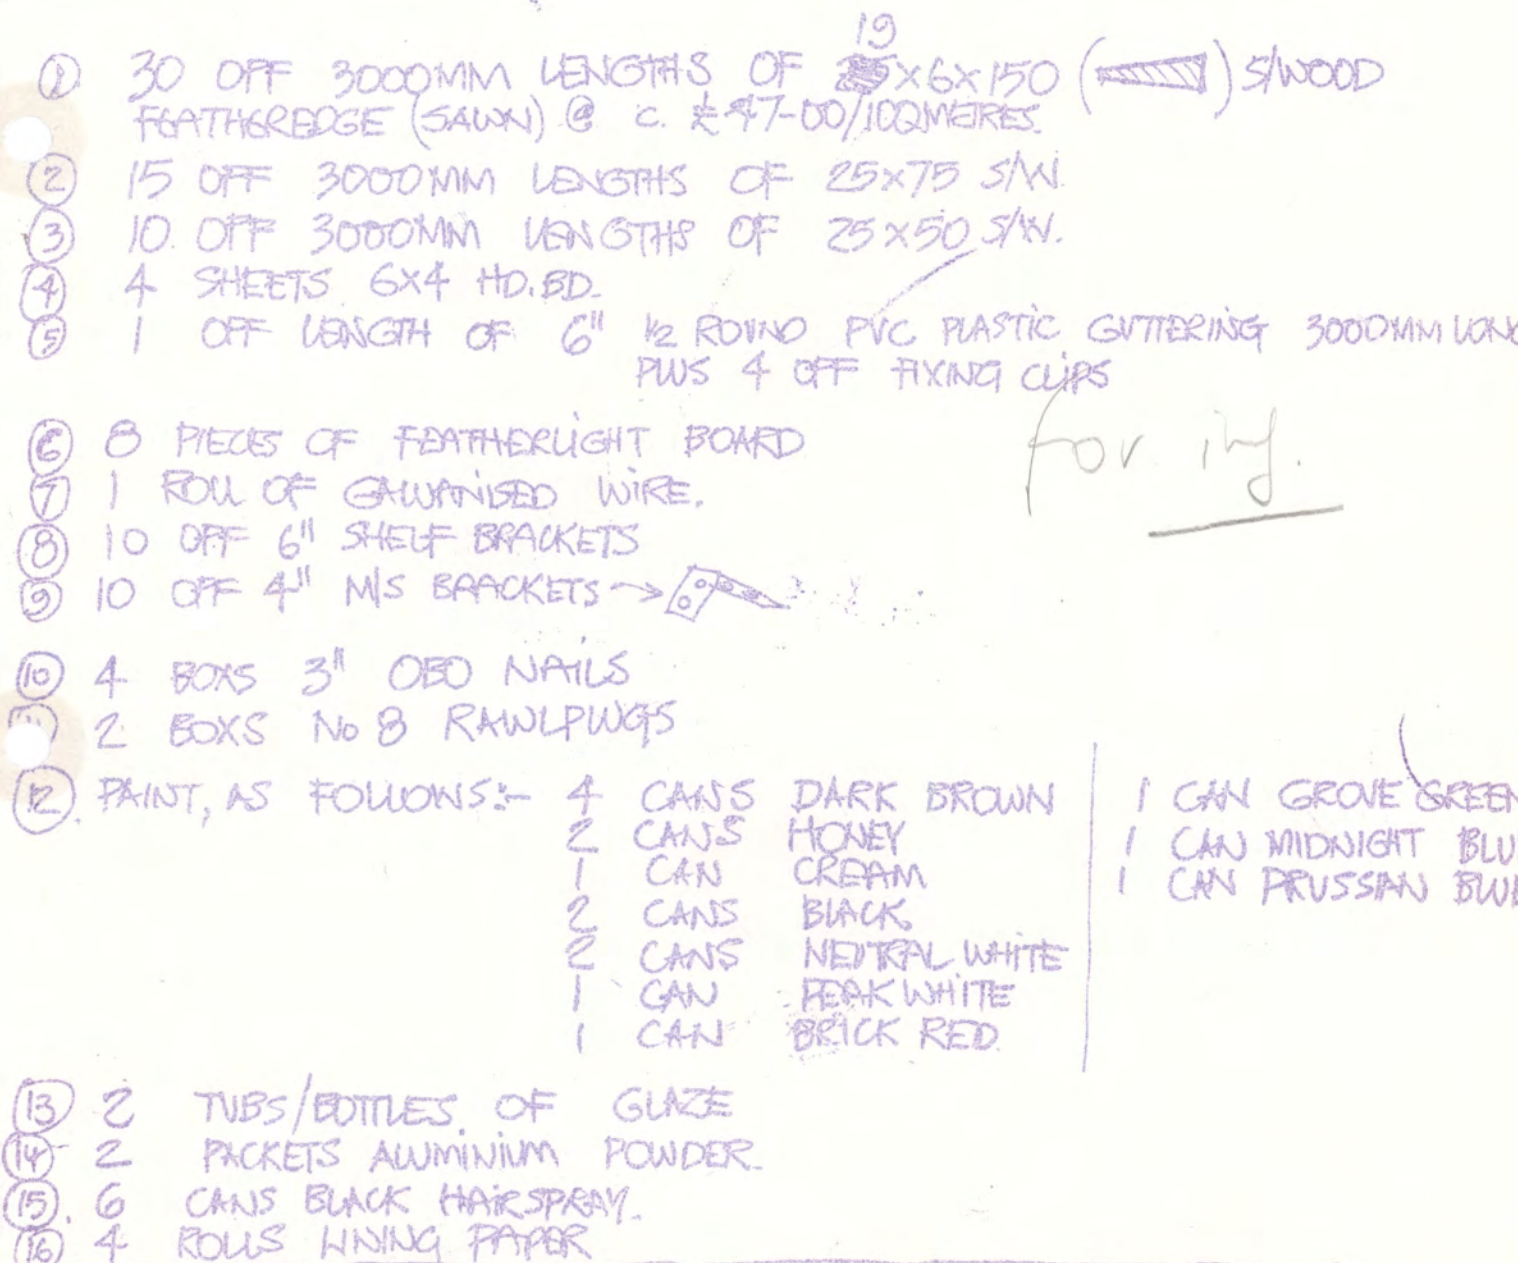 19
① 30 OFF 3000MM LENGTHS OF x6x150 ( ) S/WOOD
FEATHEREDGE (SAWN) @ c. £47-00/100METRES.
② 15 OFF 3000MM LENGTHS OF 25x75 S/W.
③ 10 OFF 3000MM LENGTHS OF 25x50 S/W.
④ 4 SHEETS 6x4 HD.BD.
⑤ 1 OFF LENGTH OF 6" 1/2 ROUND PVC PLASTIC GUTTERING 3000MM LONG
PLUS 4 OFF FIXING CLIPS
for inf.
⑥ 8 PIECES OF FEATHERLIGHT BOARD
⑦ 1 ROLL OF GALVANISED WIRE.
⑧ 10 OFF 6" SHELF BRACKETS
⑨ 10 OFF 4" M/S BRACKETS →
⑩ 4 BOXS 3" OBO NAILS
⑪ 2 BOXS No 8 RAWLPLUGS
⑫ PAINT, AS FOLLOWS:- 4 CANS DARK BROWN
2 CANS HONEY
1 CAN CREAM
2 CANS BLACK
2 CANS NEUTRAL WHITE
1 CAN PEAK WHITE
1 CAN BRICK RED
1 CAN GROVE GREEN
1 CAN MIDNIGHT BLU
1 CAN PRUSSIAN BLU
⑬ 2 TUBS/BOTTLES OF GLAZE
⑭ 2 PACKETS ALUMINIUM POWDER
⑮ 6 CANS BLACK HAIRSPRAY
⑯ 4 ROLLS LINING PAPER